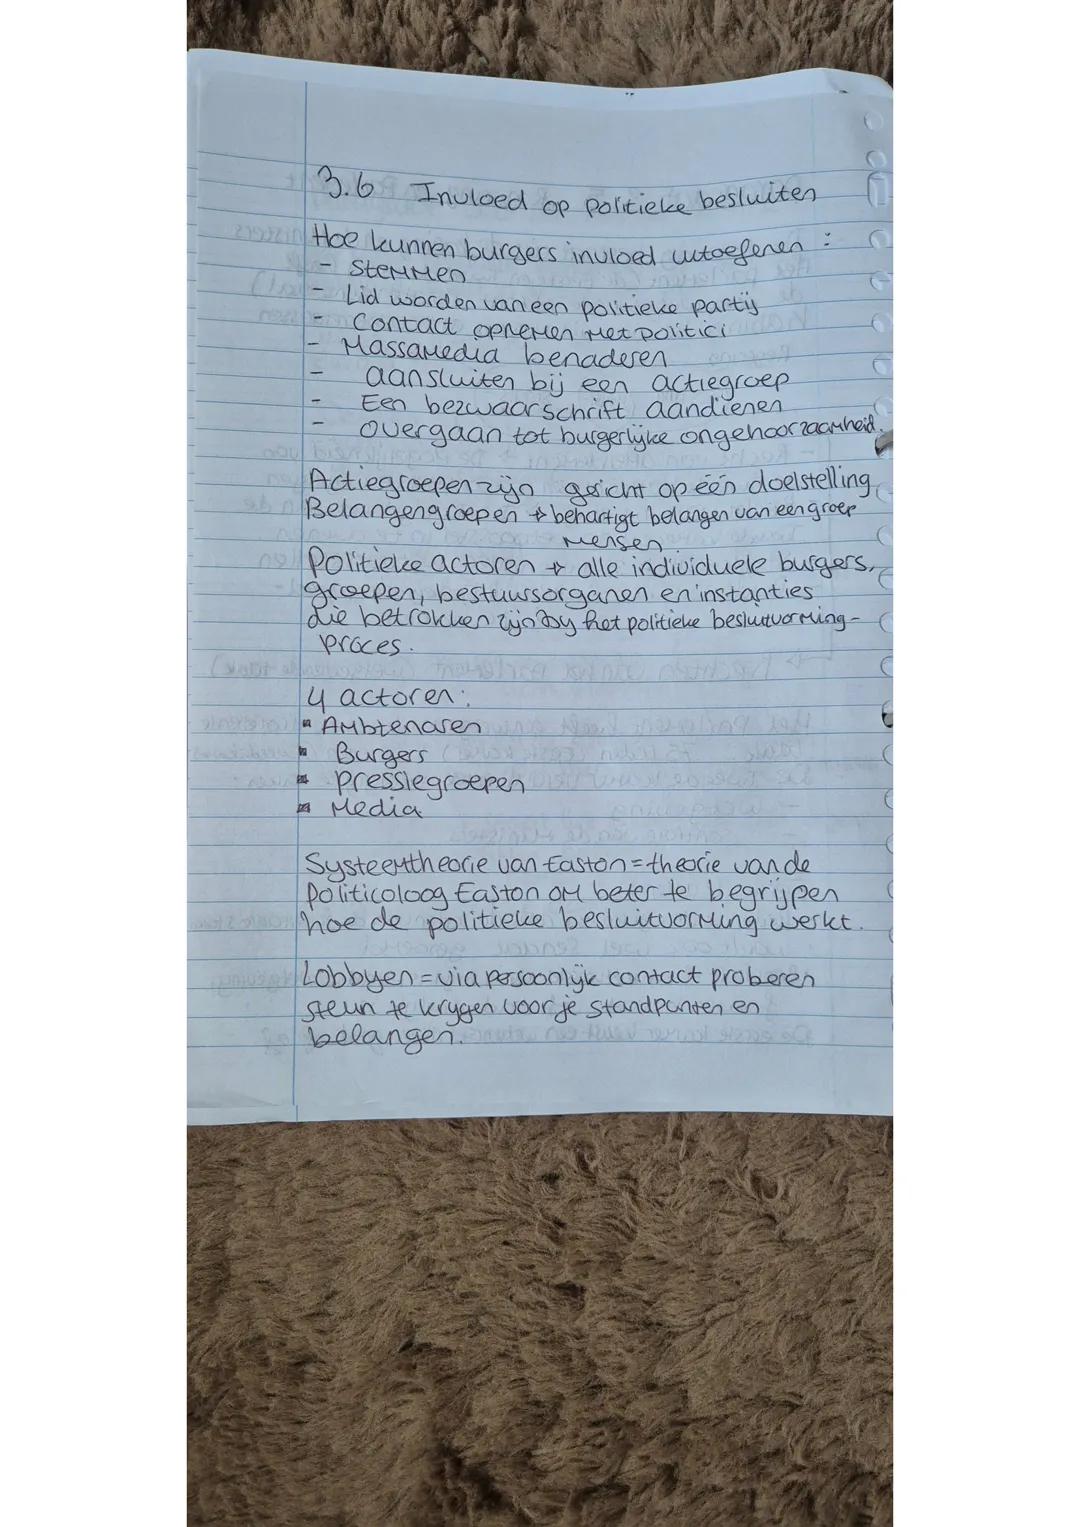 3.6 Invloed op politieke besluiten
Hoe kunnen burgers invloed uitoefenen :
- Stemmen
- Lid worden van een politieke partij
- Contact opnemen met politici
- Massamedia benaderen
- aansluiten bij een actiegroep
- Een bezwaarschrift aandienen
- overgaan tot burgerlijke ongehoorzaamheid.
Actiegroepen zijn gericht op één doelstelling
Belangengroepen → behartigt belangen van een groep
mensen.
Politieke actoren → alle individuele burgers,
groepen, bestuursorganen en instanties
die betrokken zijn by het politieke besluitvorming-
proces.
4 actoren:
▪ Ambtenaren
▪ Burgers
▪ pressiegroepen
▪ Media
Systeemtheorie van Easton = theorie van de
politicoloog Easton om beter te begrijpen
hoe de politieke besluitvorming werkt.
Lobbyen = via persoonlijk contact proberen
steun te krygen voor je standpunten en
belangen.